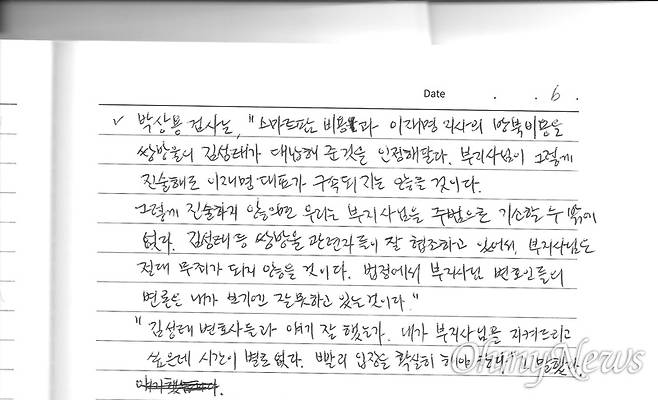 Date . . 6 .
✓ 박상용 검사는, "스마트팜 비용과 이재명 지사의 방북비용을
쌍방울의 김성태가 대납해 준 것을 인정해달라. 부지사님이 그렇게
진술해도 이재명 대표가 구속되지는 않을 것이다.
그렇게 진술하지 않으면 우리는 부지사님을 주범으로 기소할 수 밖에
없다. 김성태 등 쌍방울 관련자들이 잘 협조하고 있어서, 부지사님도
절대 무죄가 되지 않을 것이다. 법정에서 부지사님 변호인들의
변론은 내가 보기엔 잘못하고 있는것이다."
"김성태 변호사들과 얘기 잘 했는가. 내가 부지사님을 지켜드리고
싶은데 시간이 별로 없다. 빨리 입장을 확실히 해야 한다"고 말했다.
OhmyNews